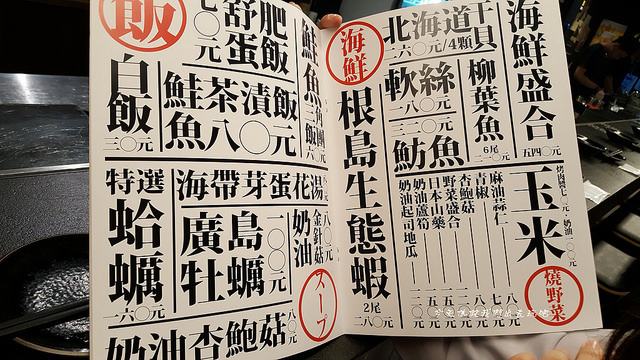 飯
舒肥
蛋飯
七〇元
白飯
三〇元
鮭魚
鮭魚茶漬飯
八〇元
特選
蛤蠣
一六〇元
海帶芽蛋花湯
廣島牡蠣
一〇〇元
奶油金針菇
八〇元
スープ
奶油杏鮑菇
八〇元
海鮮
根島生態蝦
2尾
二八〇元
北海道干貝
二六〇元/4顆
軟絲
一八〇元
三二〇元
魴魚
柳葉魚
6尾
海鮮盛合
五四〇元
玉米
燒野菜
麻油蒜仁
青椒
杏鮑菇
野菜盛合
日本山藥
奶油蘆筍
奶油起司地瓜